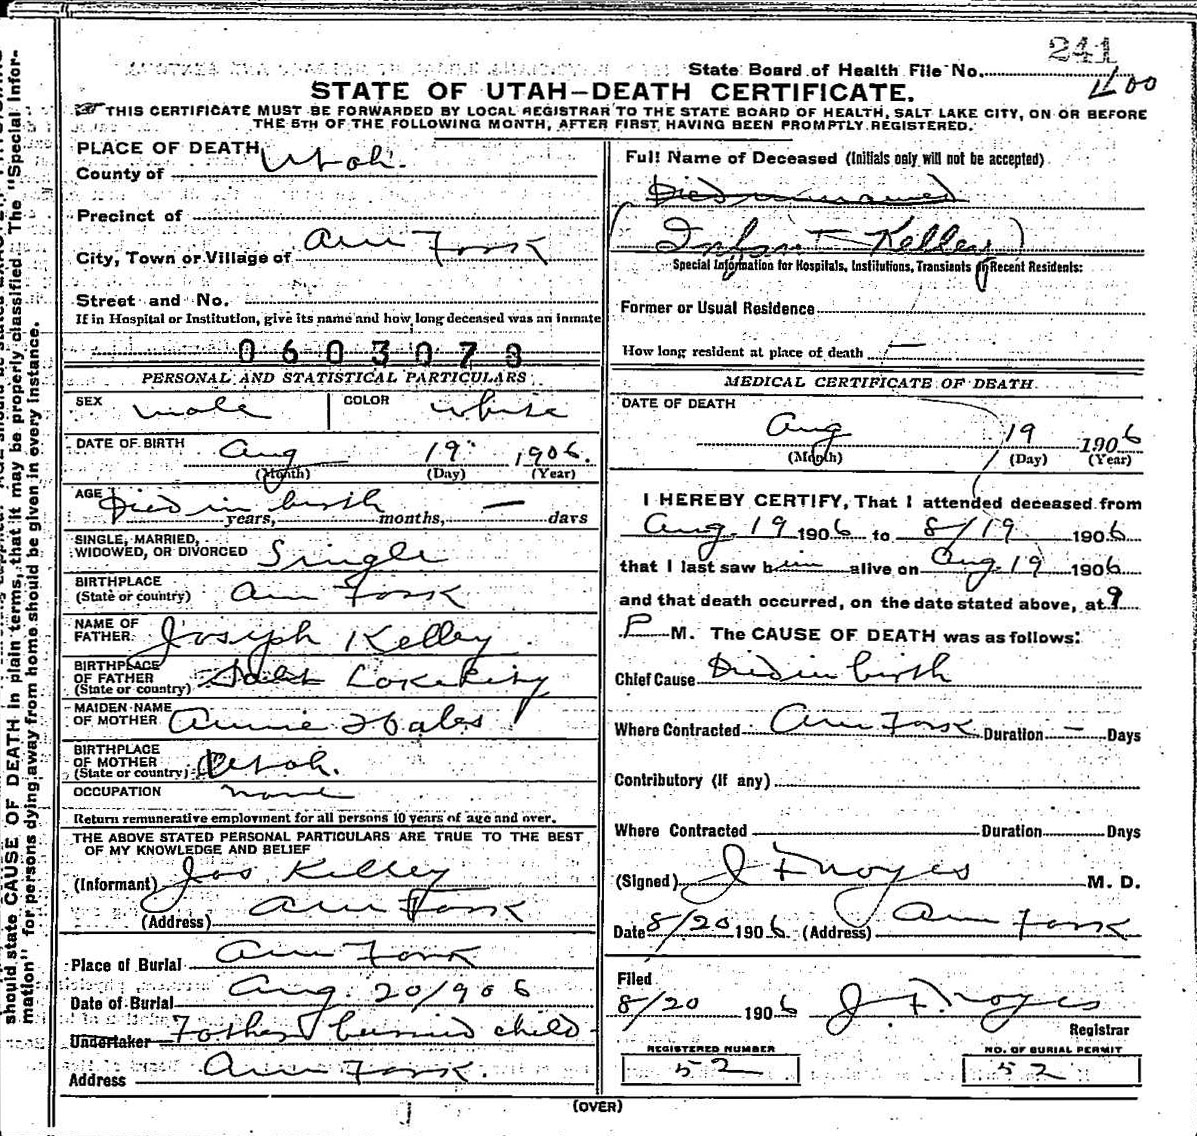 241
State Board of Health File No.
1100
STATE OF UTAH—DEATH CERTIFICATE.
THIS CERTIFICATE MUST BE FORWARDED BY LOCAL REGISTRAR TO THE STATE BOARD OF HEALTH, SALT LAKE CITY, ON OR BEFORE
THE 5TH OF THE FOLLOWING MONTH, AFTER FIRST HAVING BEEN PROMPTLY REGISTERED.
PLACE OF DEATH
County of Utah.
Precinct of
City, Town or Village of Am Fork
Street and No.
If in Hospital or Institution, give its name and how long deceased was an inmate
0603078
PERSONAL AND STATISTICAL PARTICULARS
SEX male COLOR white
DATE OF BIRTH Aug 19 1906.
(Month) (Day) (Year)
AGE Died in birth —
years, months, days
SINGLE, MARRIED,
WIDOWED, OR DIVORCED Single
BIRTHPLACE
(State or country) Am Fork
NAME OF
FATHER. Joseph Kelley
BIRTHPLACE
OF FATHER
(State or country) Salt Lake City
MAIDEN NAME
OF MOTHER Annie Hales
BIRTHPLACE
OF MOTHER
(State or country) Utah.
OCCUPATION none
Return remunerative employment for all persons 10 years of age and over.
THE ABOVE STATED PERSONAL PARTICULARS ARE TRUE TO THE BEST
OF MY KNOWLEDGE AND BELIEF
(Informant) Jos Kelley
(Address) Am Fork
Place of Burial Am Fork
Date of Burial Aug. 20/906
Undertaker Father burried child
Address Am Fork.
Full Name of Deceased (Initials only will not be accepted)
Died unnamed
(Infant Kelley)
Special Information for Hospitals, Institutions, Transients or Recent Residents:
Former or Usual Residence
How long resident at place of death —
MEDICAL CERTIFICATE OF DEATH
DATE OF DEATH
Aug 19 1906
(Month) (Day) (Year)
I HEREBY CERTIFY, That I attended deceased from
Aug. 19 1906 to 8/19 1906
that I last saw him alive on Aug. 19 1906
and that death occurred, on the date stated above, at 9
P M. The CAUSE OF DEATH was as follows:
Chief Cause Died in birth
Where Contracted Am Fork Duration — Days
Contributory (if any)
Where Contracted Duration Days
(Signed) J F Noyes M. D.
Date 8/20 1906 (Address) Am Fork
Filed
8/20 1906 J F Noyes
Registrar
REGISTERED NUMBER
52
NO. OF BURIAL PERMIT
52
(OVER)
should state CAUSE OF DEATH in plain terms, that it may be properly classified. The "Special Infor-
mation" for persons dying away from home should be given in every instance.